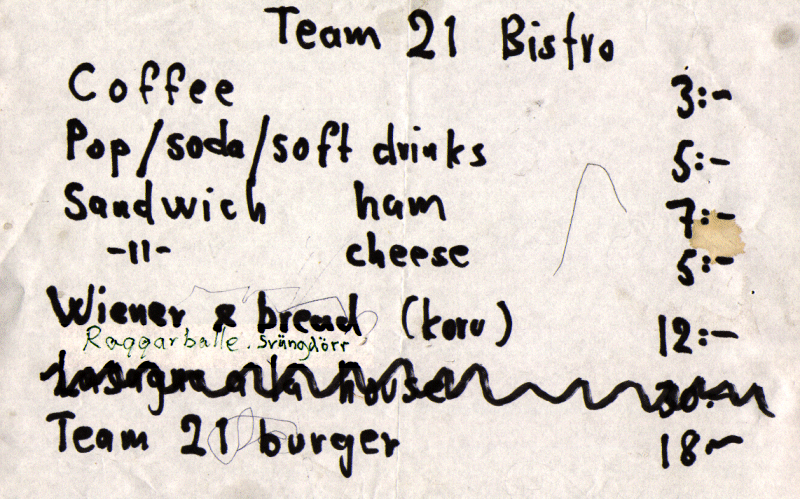 Team 21 Bistro
Coffee 3:-
Pop/soda/soft drinks 5:-
Sandwich ham 7:-
-11- cheese 5:-
Wiener & bread (korv) 12:-
Raggarballe.
Lasagna a la house 30:-
Team 21 burger 18~